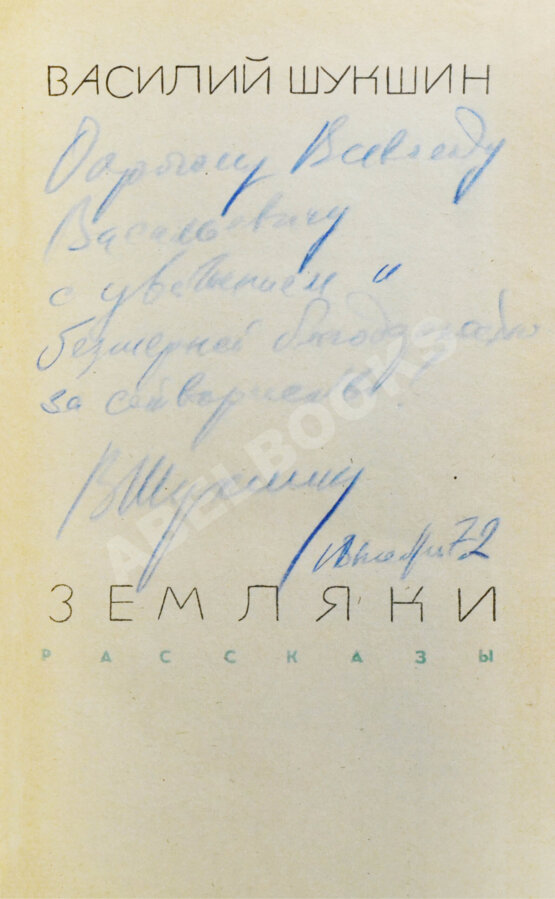 ВАСИЛИЙ ШУКШИН
Дорогому Всеволоду
Васильевичу
с уважением и
безмерной благодарностью
за
В Шукшин
72
ЗЕМЛЯКИ
РАССКАЗЫ
ABELBOOKS